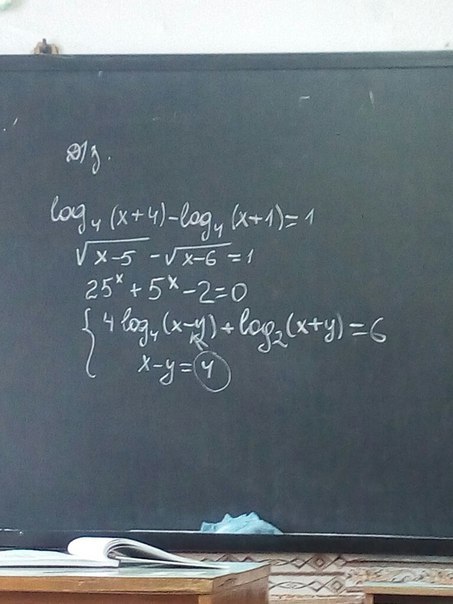 Д/з.
log₄(x+4)-log₄(x+1)=1
√x-5 - √x-6 =1
25ˣ+5ˣ-2=0
{ 4 log₄(x-y)+log₂(x+y)=6
x-y=4